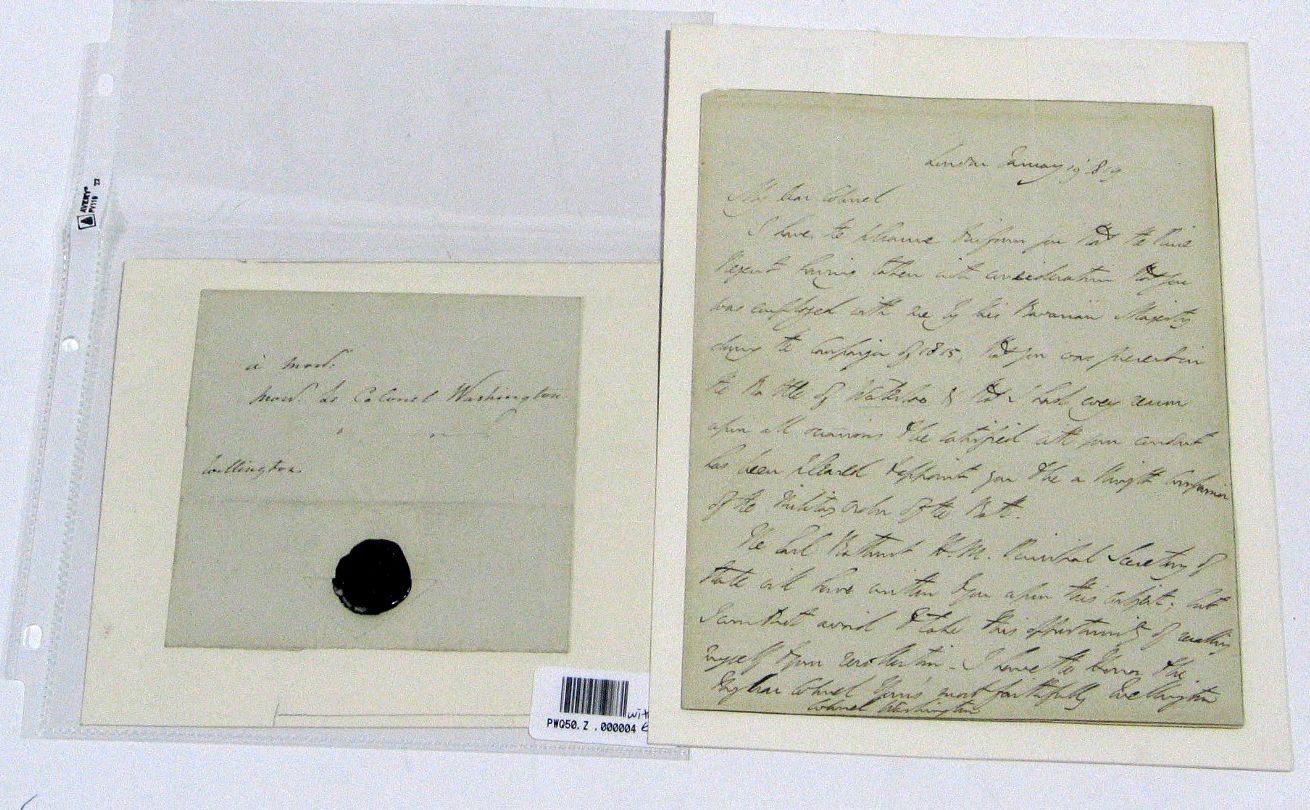 AVERY®
PV119
à mons.
mons. le Colonel Washington
Wellington
PWQ50.Z .000004
with
London January 19 1819
My dear Colonel
I have the pleasure to inform you that the Prince
Regent having taken into consideration that you
was employed with me by his Bavarian Majesty
during the Campaign of 1815, that you was present in
the Battle of Waterloo & that I had every reason
upon all occasions to be satisfied with your conduct
has been pleased to appoint you to be a Knight Companion
of the Military Order of the Bath.
The Earl Bathurst H.M. Principal Secretary of
State will have written to you upon this subject; but
I cannot avoid to take this opportunity of recalling
myself to your recollection. I have the honor to be
My dear Colonel Yours most faithfully Wellington
Colonel Washington